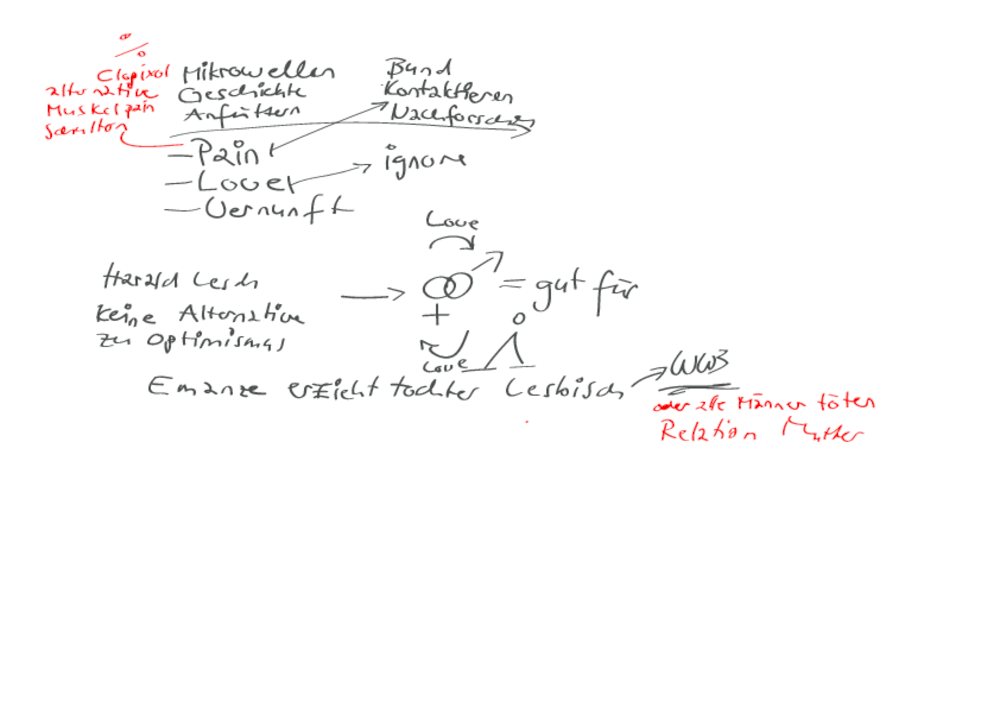 Clopixol
alternative
Muskelpain
Mikrowellen
Geschichte
Anfüttern
Bund
Kontaktieren
Nachforschen
– Pain
– Lover
– Vernunft
ignore
Love
Harald Lesch
keine Alternative
zu Optimismus
= gut für
Love
Emanze erzieht tochter Lesbisch
WW3
oder alle Männer töten
Relation Mutter